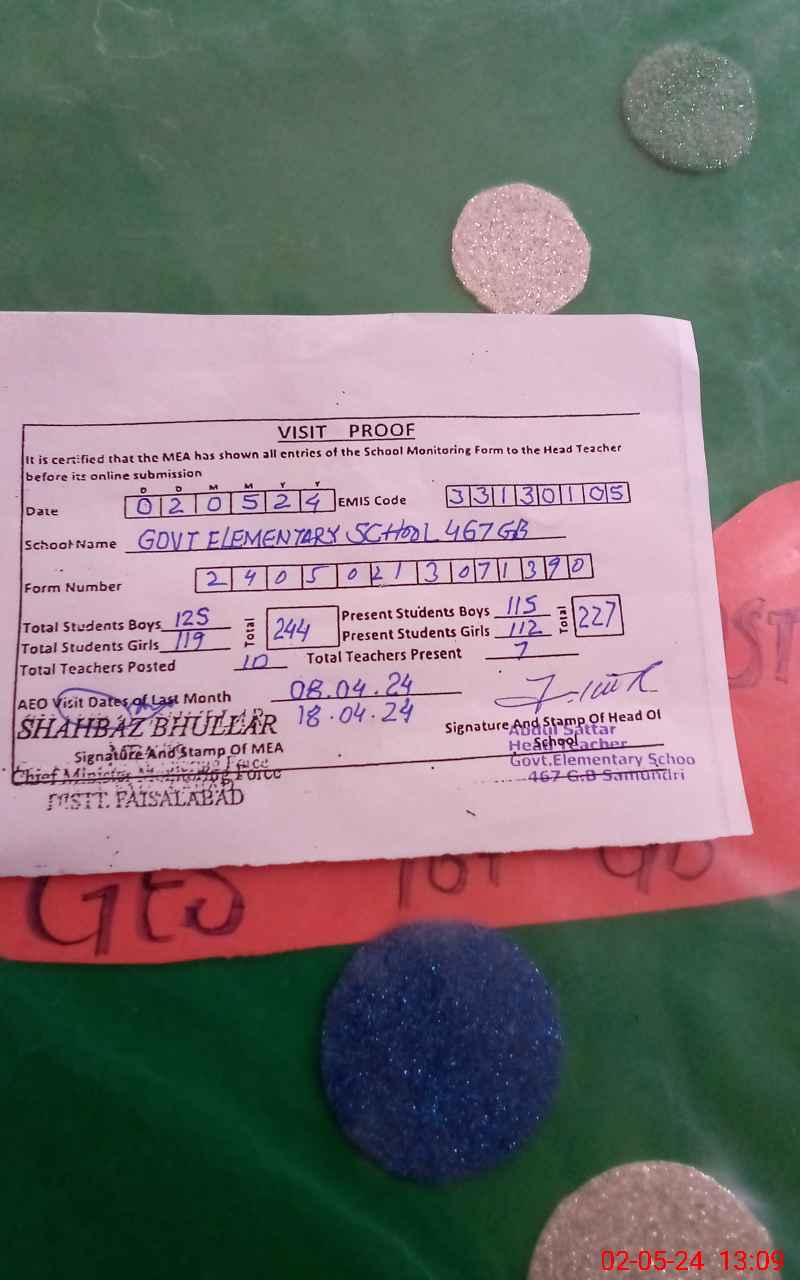 VISIT PROOF
It is certified that the MEA has shown all entries of the School Monitoring Form to the Head Teacher
before its online submission
D D M M Y Y
Date 0 2 0 5 2 4 EMIS Code 3 3 1 3 0 1 0 5
School Name GOVT ELEMENTARY SCHOOL 467 GB
Form Number 2 4 0 5 0 2 1 3 0 7 1 3 9 0
Total Students Boys 125 Total 244 Present Students Boys 115 Total 227
Total Students Girls 119 Present Students Girls 112
Total Teachers Posted 10 Total Teachers Present 7
AEO Visit Dates of Last Month 08.04.24
18.04.24
SHAHBAZ BHULLAR
Signature And Stamp Of MEA
Chief Minister Monitoring Force
DISTT. FAISALABAD
Signature And Stamp Of Head Of
School
Abdul Sattar
Head Teacher
Govt.Elementary Schoo
467 G.B Samundri
ST
GES GB
02-05-24 13:09